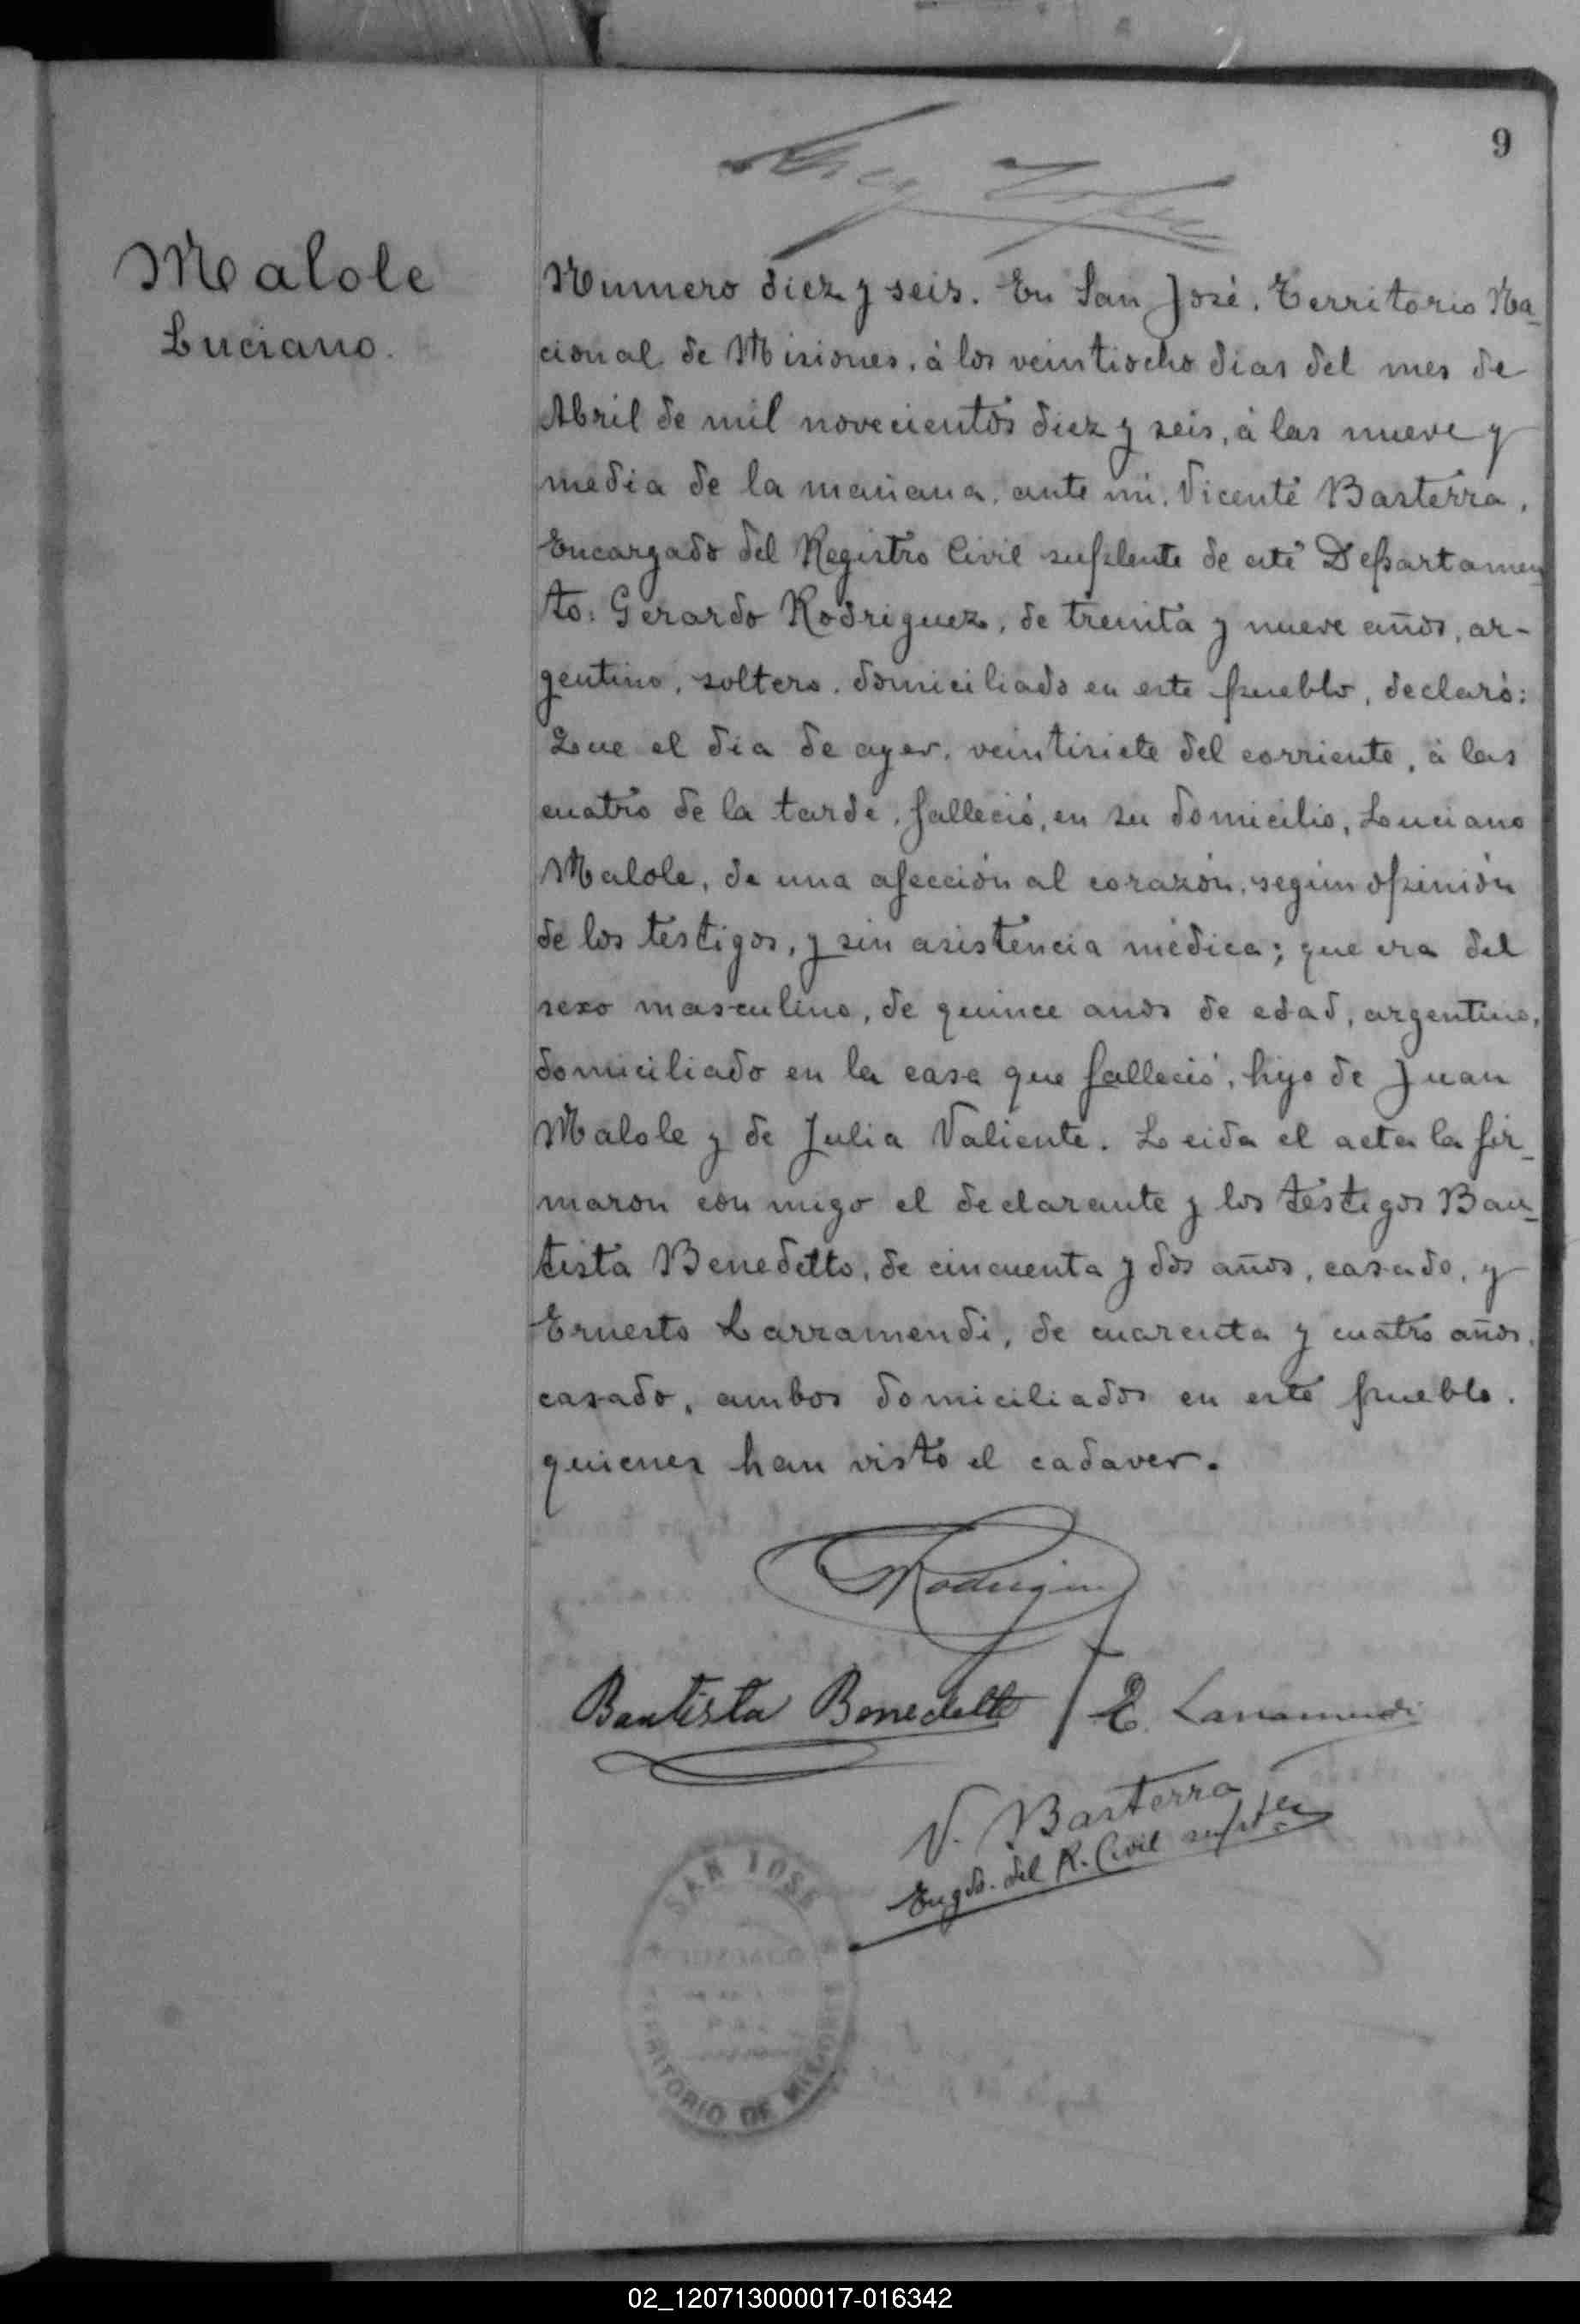 9
Malole
Luciano.
Numero diez y seis. En San José, Territorio Na-
cional de Misiones, á los veintiocho dias del mes de
Abril de mil novecientos diez y seis, á las nueve y
media de la mañana, ante mi, Vicente Basterra,
Encargado del Registro Civil suplente de este Departamen
to: Gerardo Rodriguez, de treinta y nueve años, ar-
gentino, soltero, domiciliado en este pueblo, declaró:
Que el dia de ayer, veintisiete del corriente, á las
cuatro de la tarde, falleció, en su domicilio, Luciano
Malole, de una afección al corazón, según opinión
de los testigos, y sin asistencia médica; que era del
sexo masculino, de quince anos de edad, argentino,
domiciliado en la casa que falleció, hijo de Juan
Malole y de Julia Valiente. Leida el acta la fir-
maron con migo el declarante y los testigos Bau-
tista Benedetto, de cincuenta y dos años, casado, y
Ernesto Larramendi, de cuarenta y cuatro años,
casado, ambos domiciliados en este pueblo,
quienes han visto el cadaver.
Rodriguez
Bautista Benedetto / E. Larramendi
V. Basterra
Engdo. del R. Civil supte
SAN JOSE
TERRITORIO DE MISIONES
02_120713000017-016342